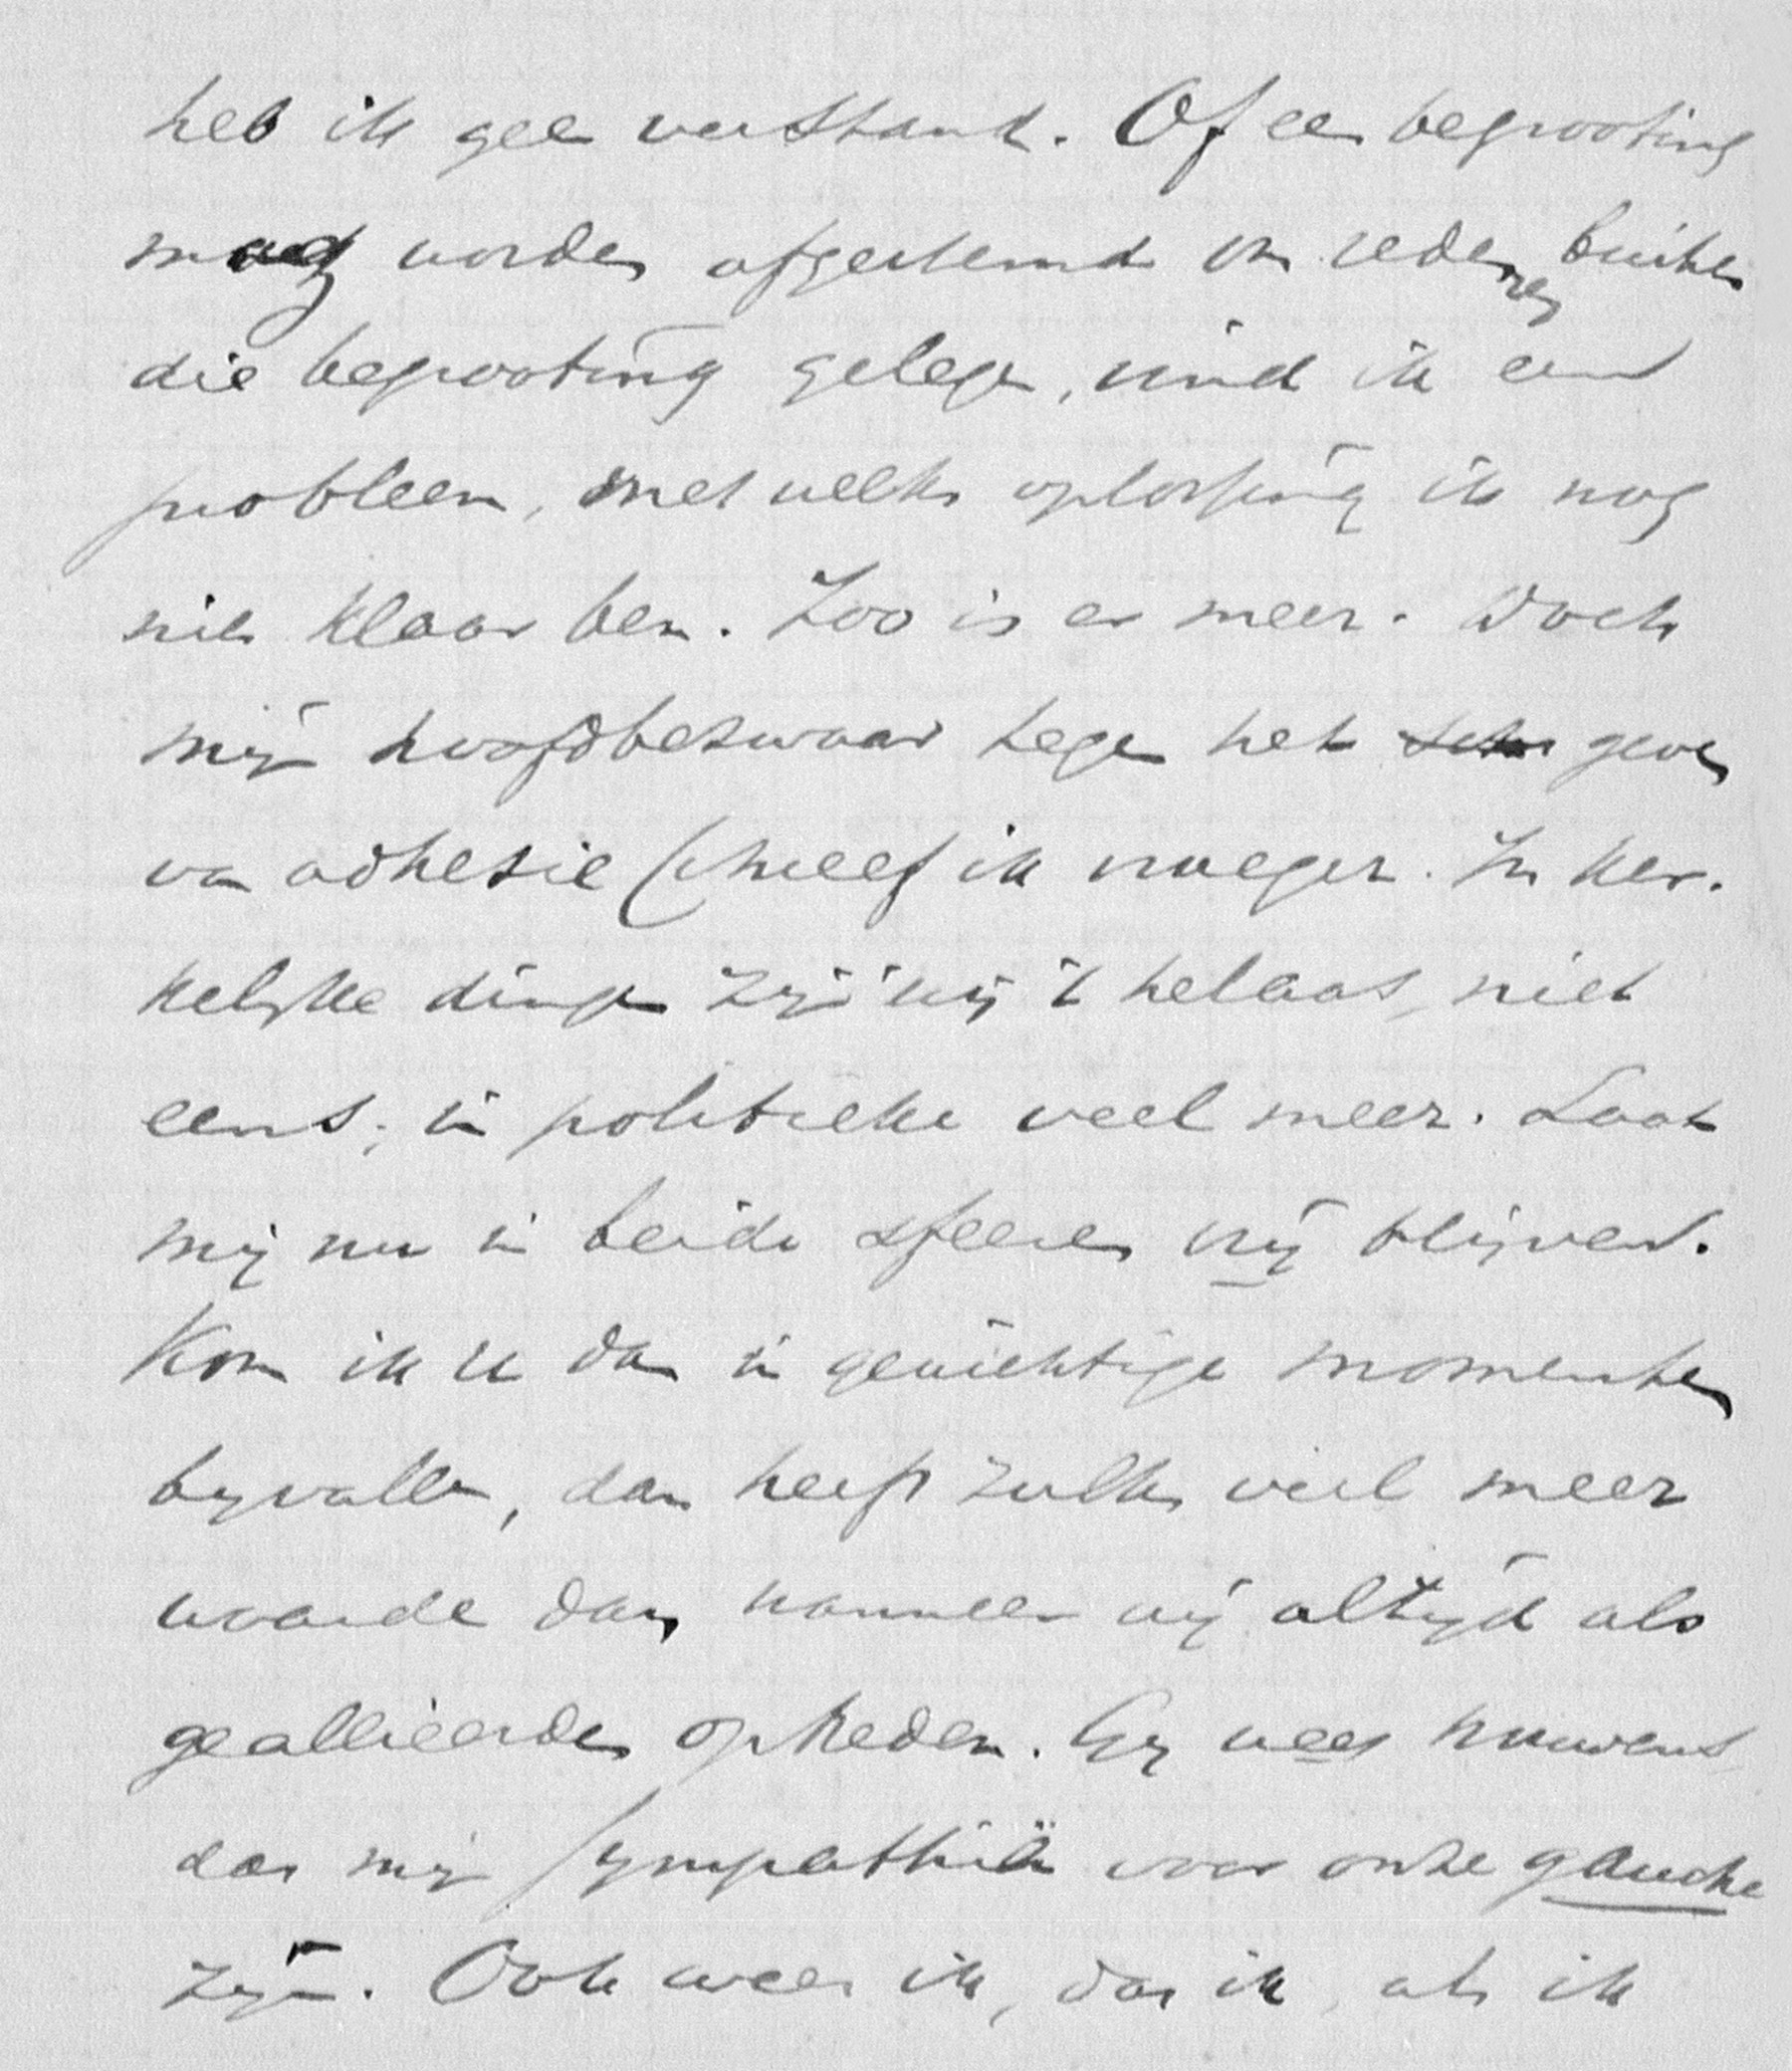 heb ik geen verstand. Of een begrooting
mag worden afgestemd om redenen buiten
die begrooting gelegen, vind ik een
probleem, met welks oplossing ik nog
niet klaar ben. Zoo is er meer. Doch
mijn hoofdbezwaar tegen het geven
van adhesie schreef ik vroeger. In ker-
kelijke dingen zijn wij 't helaas, niet
eens; in politieke veel meer. Laat
mij nu in beide sfeeren vrij blijven.
Kom ik u dan in gewichtige momenten
bijvallen, dan heeft zulks veel meer
waarde dan wanneer wij altijd als
geallieerden optreden. Gij weet trouwens
dat mijn sympathiën voor onze gauche
zijn. Ook weet ik, dat ik, als ik